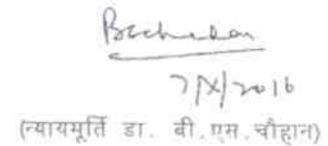 7/X/2016
(न्यायमूर्ति डा. बी.एस.चौहान)